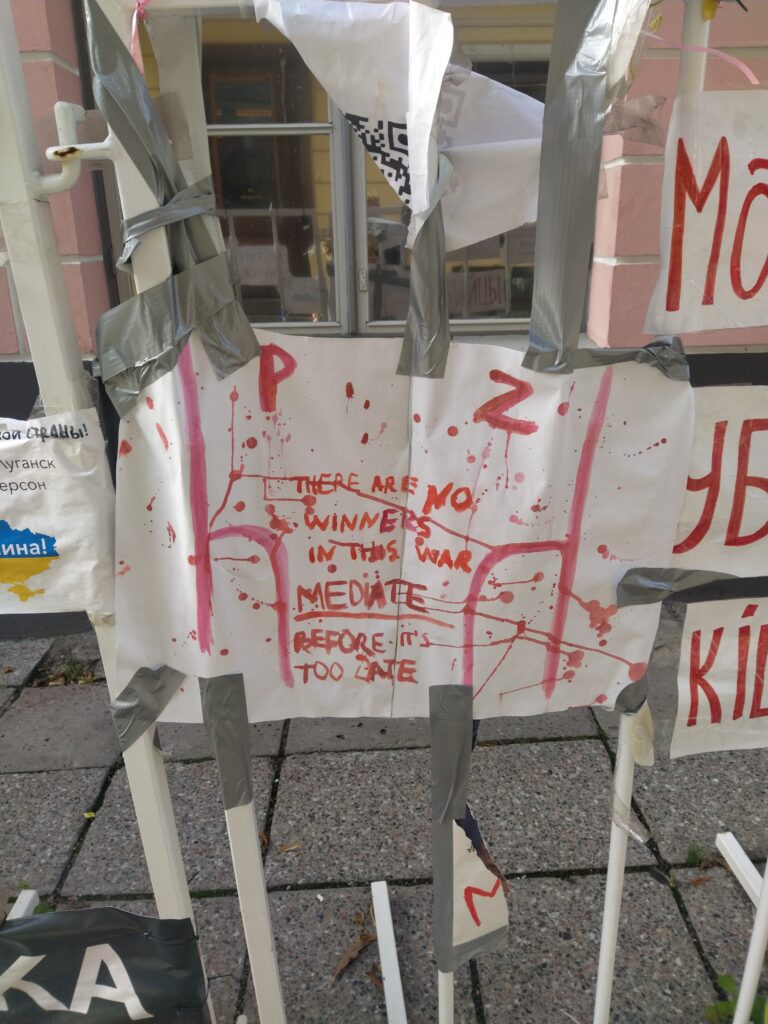 MÕ
P Z
ОЙ СТРАНЫ!
Луганск
ерсон
ина!
THERE ARE NO
WINNERS
IN THIS WAR
MEDIATE
BEFORE IT'S
TOO LATE
УБ
KA